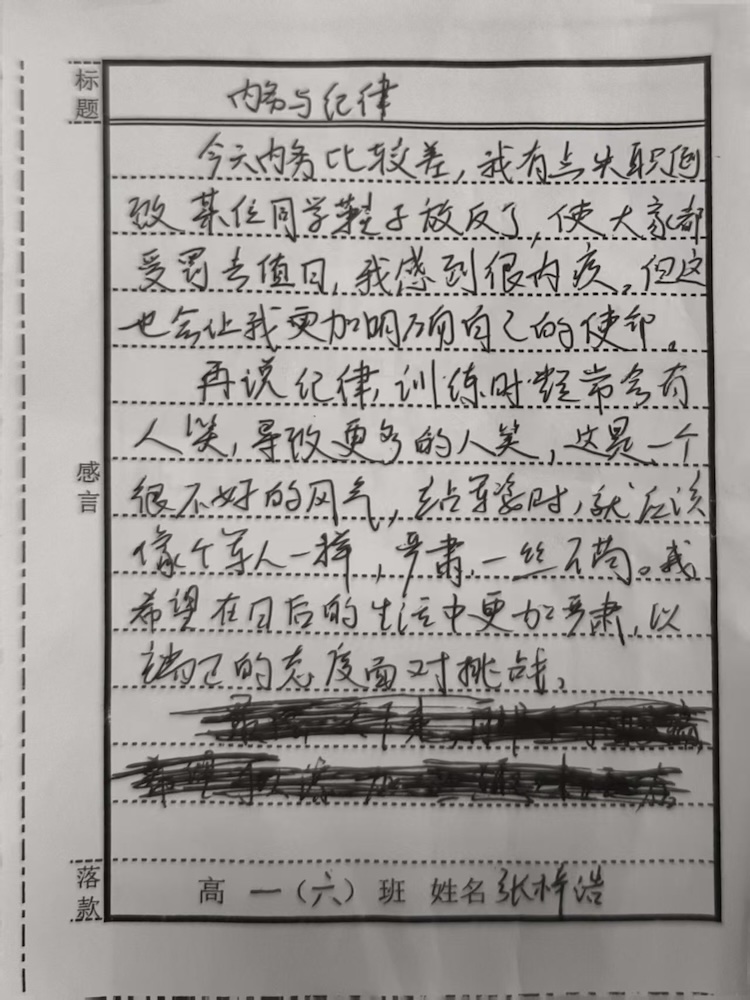 标题
内务与纪律
今天内务比较差,我有点失职倒
致某位同学鞋子放反了,使大家都
受罚去值日,我感到很内疚。但这
也会让我更加明确自己的使命。
再说纪律,训练时经常会有
人笑,导致更多的人笑,这是一个
很不好的风气,站军姿时,就应该
像个军人一样,严肃,一丝不苟。我
希望在日后的生活中更加严肃,以
端正的态度面对挑战。
感言
落款
高一(六)班 姓名 张梓浩